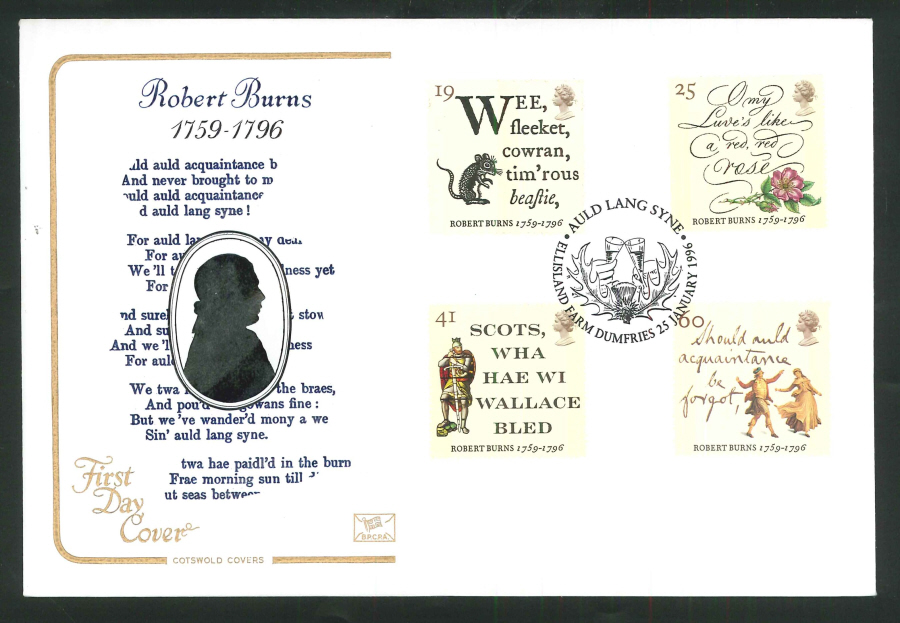 Robert Burns
1759-1796
uld auld acquaintance b
And never brought to m
ould auld acquaintance
d auld lang syne !
For auld la ay dea
For au
We'll t ness yet
For
nd surel t stow
And su
And we'l ness
For auld
We twa the braes,
And pou'd gowans fine :
But we've wander'd mony a we
Sin' auld lang syne.
twa hae paidl'd in the burn
Frae morning sun till
ut seas between
First
Day
Cover
COTSWOLD COVERS
BPCPA
19
WEE,
sleeket,
cowran,
tim'rous
beastie,
ROBERT BURNS 1759-1796
25
O my
Luve's like
a red, red
rose
ROBERT BURNS 1759-1796
• AULD LANG SYNE •
ELLISLAND FARM DUMFRIES 25 JANUARY 1996
41
SCOTS,
WHA
HAE WI
WALLACE
BLED
ROBERT BURNS 1759-1796
60
Should auld
acquaintance
be
forgot,
ROBERT BURNS 1759-1796